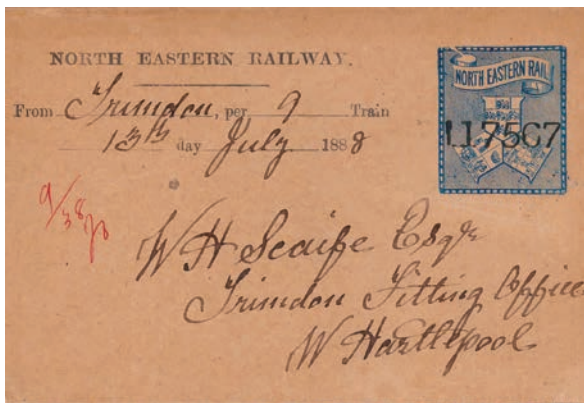 NORTH EASTERN RAILWAY.
From Trimdon, per 9 Train
13th day July 1888
NORTH EASTERN RAIL
117567
W H Scaife Esqre
Trimdon Fitting Office
W Hartlepool